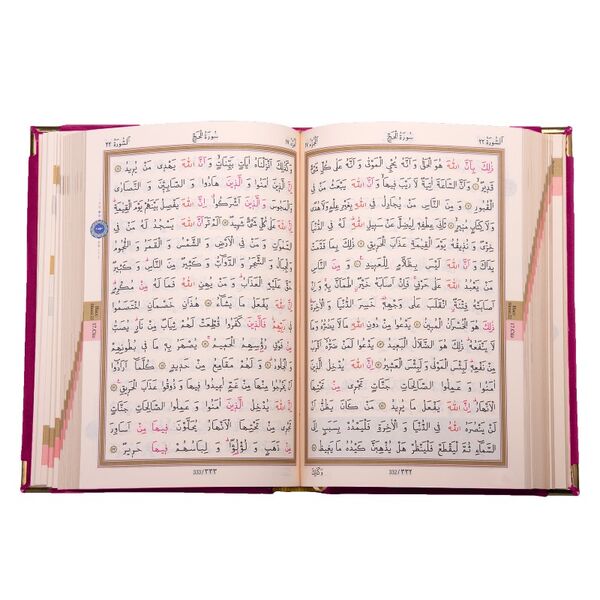 اَلسُّورَةُ ٢٢ سُورَةُ الْحَجِّ اَلْجُزْءُ ١٧
ذٰلِكَ بِاَنَّ اللّٰهَ هُوَ الْحَقُّ وَاَنَّهُ يُحْيِ الْمَوْتٰى وَاَنَّهُ عَلٰى كُلِّ شَيْءٍ
قَدِيرٌ وَاَنَّ السَّاعَةَ اٰتِيَةٌ لَا رَيْبَ فِيهَا وَاَنَّ اللّٰهَ يَبْعَثُ مَنْ فِي
الْقُبُورِ وَمِنَ النَّاسِ مَنْ يُجَادِلُ فِي اللّٰهِ بِغَيْرِ عِلْمٍ وَلَا هُدًى
وَلَا كِتَابٍ مُنِيرٍ ثَانِيَ عِطْفِهِ لِيُضِلَّ عَنْ سَبِيلِ اللّٰهِ لَهُ فِي الدُّنْيَا
خِزْيٌ وَنُذِيقُهُ يَوْمَ الْقِيٰمَةِ عَذَابَ الْحَرِيقِ ذٰلِكَ بِمَا قَدَّمَتْ
يَدَاكَ وَاَنَّ اللّٰهَ لَيْسَ بِظَلَّامٍ لِلْعَبِيدِ وَمِنَ النَّاسِ
مَنْ يَعْبُدُ اللّٰهَ عَلٰى حَرْفٍ فَاِنْ اَصَابَهُ خَيْرٌ اطْمَاَنَّ بِهِ وَاِنْ
اَصَابَتْهُ فِتْنَةٌ انْقَلَبَ عَلٰى وَجْهِهِ خَسِرَ الدُّنْيَا وَالْاٰخِرَةَ
ذٰلِكَ هُوَ الْخُسْرَانُ الْمُبِينُ يَدْعُوا مِنْ دُونِ اللّٰهِ مَا لَا يَضُرُّهُ وَمَا
لَا يَنْفَعُهُ ذٰلِكَ هُوَ الضَّلَالُ الْبَعِيدُ يَدْعُوا لَمَنْ ضَرُّهُ اَقْرَبُ
مِنْ نَفْعِهِ لَبِئْسَ الْمَوْلٰى وَلَبِئْسَ الْعَشِيرُ اِنَّ اللّٰهَ يُدْخِلُ
الَّذِينَ اٰمَنُوا وَعَمِلُوا الصَّالِحَاتِ جَنَّاتٍ تَجْرِي مِنْ تَحْتِهَا
الْاَنْهَارُ اِنَّ اللّٰهَ يَفْعَلُ مَا يُرِيدُ مَنْ كَانَ يَظُنُّ اَنْ لَنْ
يَنْصُرَهُ اللّٰهُ فِي الدُّنْيَا وَالْاٰخِرَةِ فَلْيَمْدُدْ بِسَبَبٍ اِلَى
السَّمَاءِ ثُمَّ لْيَقْطَعْ فَلْيَنْظُرْ هَلْ يُذْهِبَنَّ كَيْدُهُ مَا يَغِيظُ
332/٣٣٢
اَلسُّورَةُ ٢٢ سُورَةُ الْحَجِّ
وَكَذٰلِكَ اَنْزَلْنَاهُ اٰيَاتٍ بَيِّنَاتٍ وَاَنَّ اللّٰهَ يَهْدِي مَنْ يُرِيدُ
اِنَّ الَّذِينَ اٰمَنُوا وَالَّذِينَ هَادُوا وَالصَّابِئِينَ وَالنَّصَارٰى
وَالْمَجُوسَ وَالَّذِينَ اَشْرَكُوا اِنَّ اللّٰهَ يَفْصِلُ بَيْنَهُمْ يَوْمَ الْقِيٰمَةِ
اِنَّ اللّٰهَ عَلٰى كُلِّ شَيْءٍ شَهِيدٌ اَلَمْ تَرَ اَنَّ اللّٰهَ يَسْجُدُ لَهُ مَنْ فِي
السَّمٰوَاتِ وَمَنْ فِي الْاَرْضِ وَالشَّمْسُ وَالْقَمَرُ وَالنُّجُومُ
وَالْجِبَالُ وَالشَّجَرُ وَالدَّوَابُّ وَكَثِيرٌ مِنَ النَّاسِ وَكَثِيرٌ
حَقَّ عَلَيْهِ الْعَذَابُ وَمَنْ يُهِنِ اللّٰهُ فَمَا لَهُ مِنْ مُكْرِمٍ
اِنَّ اللّٰهَ يَفْعَلُ مَا يَشَاءُ هٰذَانِ خَصْمَانِ اخْتَصَمُوا
فِي رَبِّهِمْ فَالَّذِينَ كَفَرُوا قُطِّعَتْ لَهُمْ ثِيَابٌ مِنْ نَارٍ يُصَبُّ
مِنْ فَوْقِ رُؤُسِهِمُ الْحَمِيمُ يُصْهَرُ بِهِ مَا فِي بُطُونِهِمْ
وَالْجُلُودُ وَلَهُمْ مَقَامِعُ مِنْ حَدِيدٍ كُلَّمَا اَرَادُوا
اَنْ يَخْرُجُوا مِنْهَا مِنْ غَمٍّ اُعِيدُوا فِيهَا وَذُوقُوا عَذَابَ الْحَرِيقِ
اِنَّ اللّٰهَ يُدْخِلُ الَّذِينَ اٰمَنُوا وَعَمِلُوا الصَّالِحَاتِ جَنَّاتٍ
تَجْرِي مِنْ تَحْتِهَا الْاَنْهَارُ يُحَلَّوْنَ فِيهَا مِنْ اَسَاوِرَ
مِنْ ذَهَبٍ وَلُؤْلُؤًا وَلِبَاسُهُمْ فِيهَا حَرِيرٌ
333/٣٣٣